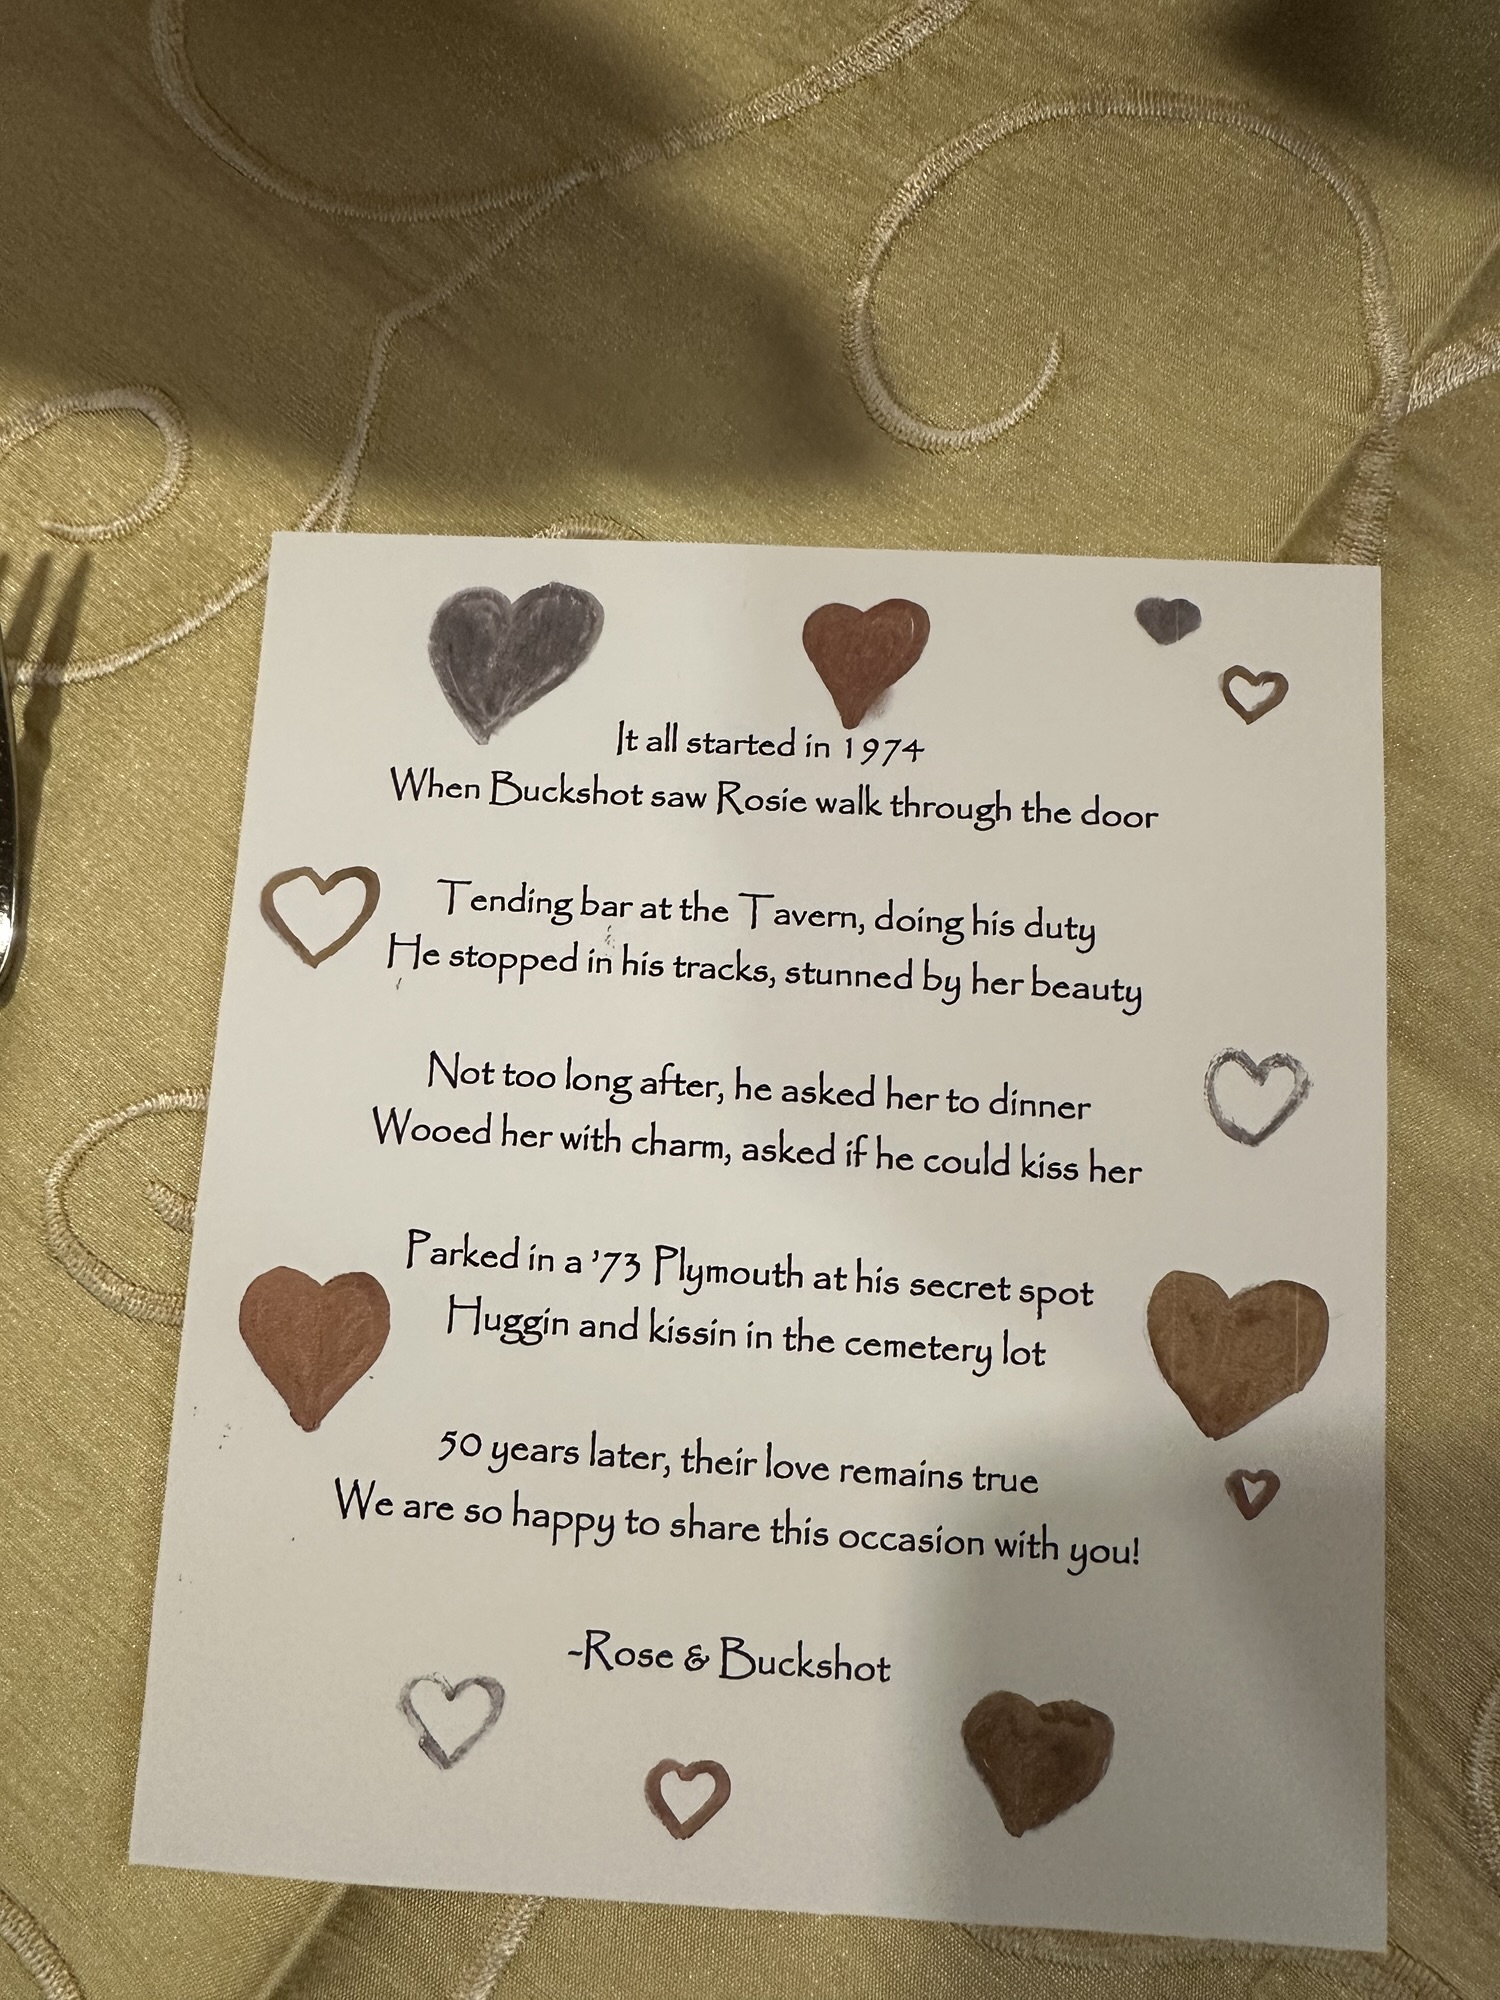 It all started in 1974
When Buckshot saw Rosie walk through the door
Tending bar at the Tavern, doing his duty
He stopped in his tracks, stunned by her beauty
Not too long after, he asked her to dinner
Wooed her with charm, asked if he could kiss her
Parked in a '73 Plymouth at his secret spot
Huggin and kissin in the cemetery lot
50 years later, their love remains true
We are so happy to share this occasion with you!
-Rose & Buckshot